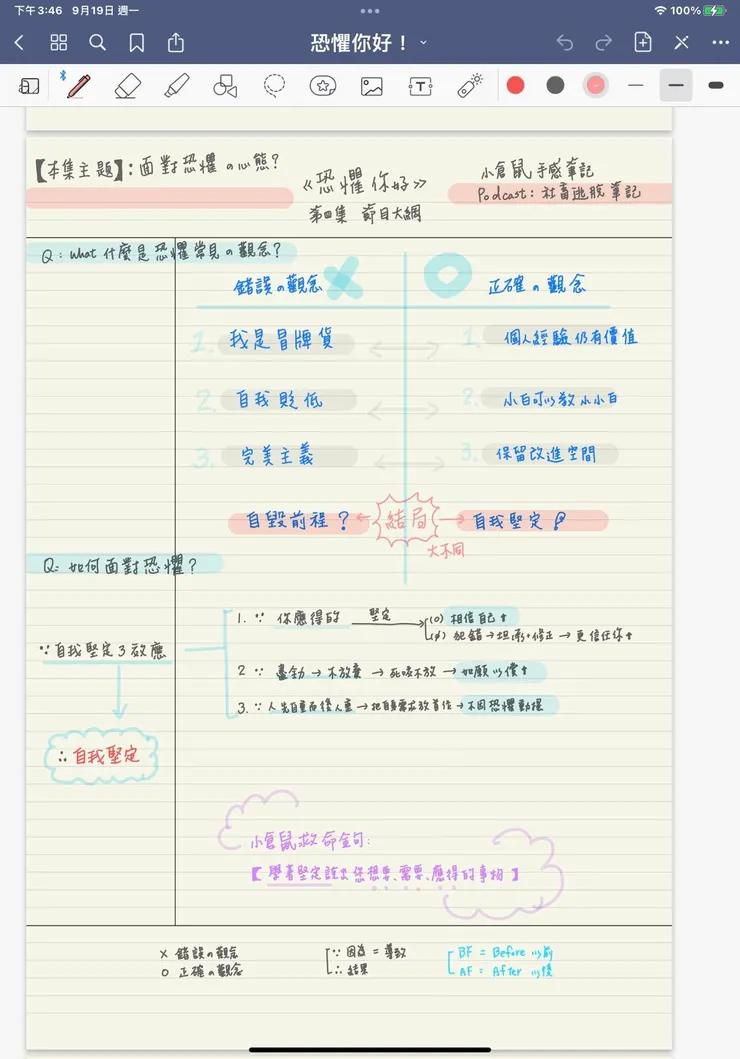 下午3:46 9月19日 週一
100%
恐懼你好！
【本集主題】：面對恐懼の心態？
《恐懼你好》
第四集 節目大綱
小倉鼠手感筆記
Podcast：社畜逃脫筆記
Q：What 什麼是恐懼常見の觀念？
錯誤の觀念 X
O 正確の觀念
1. 我是冒牌貨
1. 個人經驗仍有價值
2. 自我貶低
2. 小白可以教小小白
3. 完美主義
3. 保留改進空間
自毀前程？
結局
自我堅定
大不同
Q：如何面對恐懼？
∵自我堅定3效應
∴自我堅定
1. ∵ 你應得的 堅定 → (o) 相信自己↑
犯錯→坦承+修正→更信任你↑
2 ∵ 盡力→不放棄→死嗑不放→如願以償↑
3. ∵人先自重而後人重→把自我需求放首位→不因恐懼動搖
小倉鼠救命金句：
【學著堅定說出您想要、需要、應得的事物】
X 錯誤の觀念
O 正確の觀念
∵ 因為 = 導致
∴ 結果
BF = Before 以前
AF = After 以後